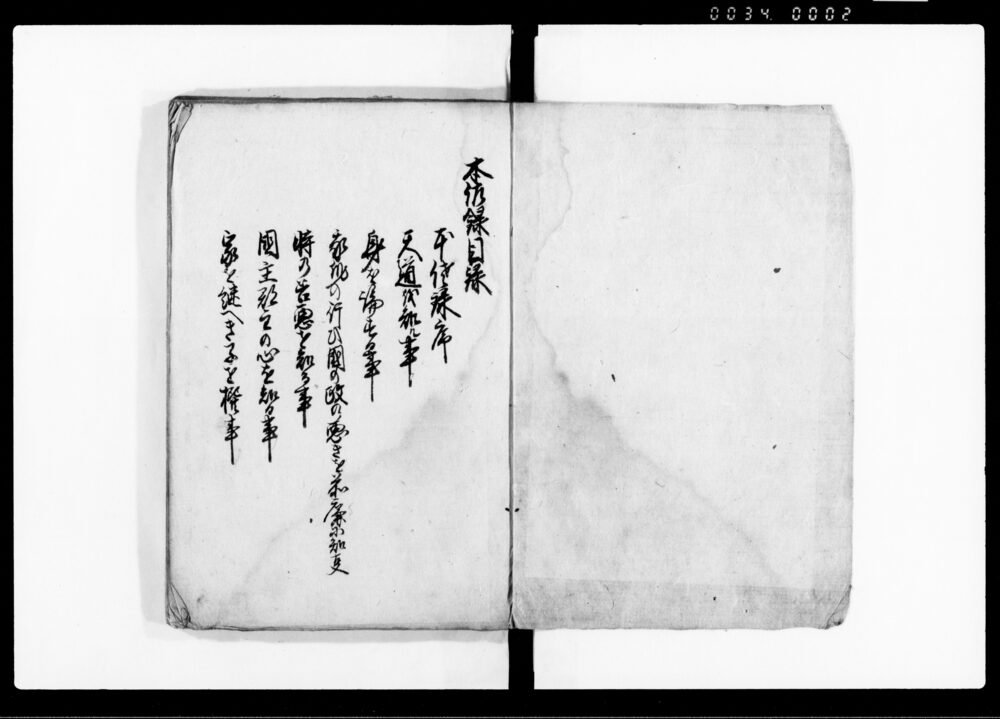 0034 0002
本佐録目録
本佐録序
天道を知ル事
身を端する事
家抔の行ひ國の政の悪きを前廉ニ知事
時の善悪を知る事
國主郡主の心を知る事
家を継へき子を撰事